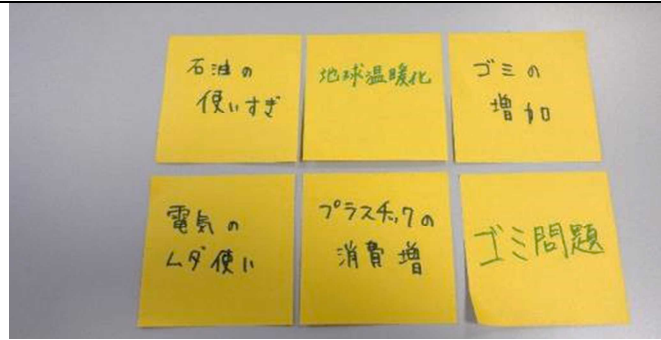 石油の
使いすぎ
地球温暖化
ゴミの
増加
電気の
ムダ使い
プラスチックの
消費増
ゴミ問題